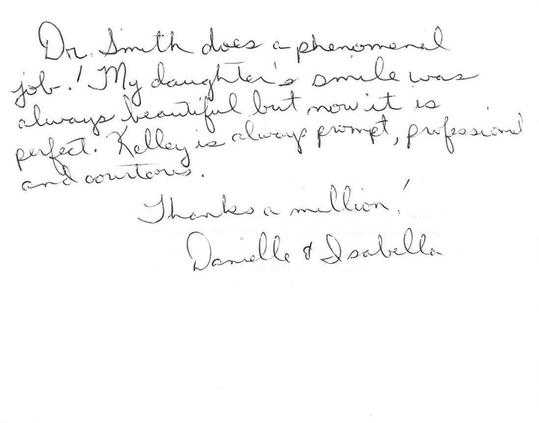 Dr. Smith does a phenomenal
job! My daughter's smile was
always beautiful but now it is
perfect. Kelley is always prompt, professional
and courtous.
Thanks a million!
Danielle & Isabella